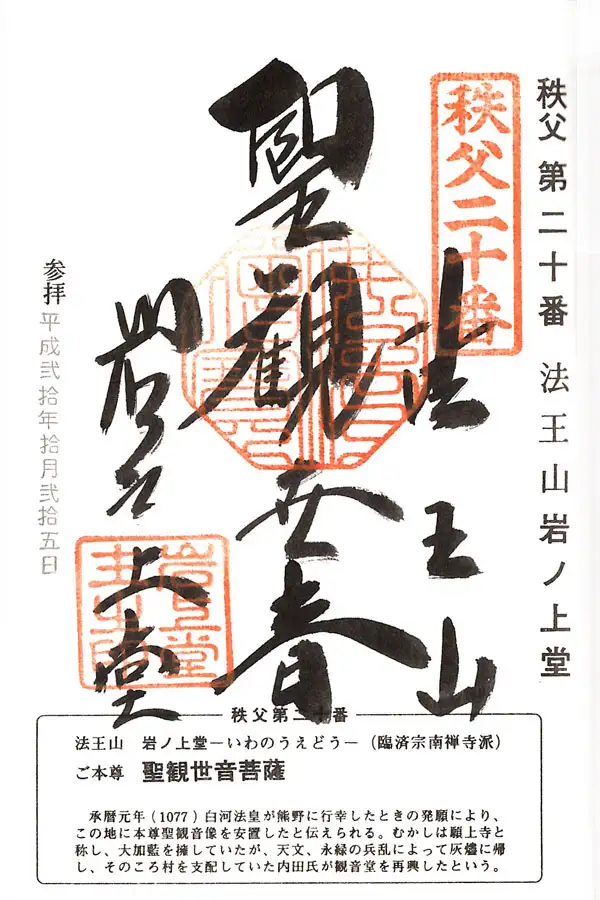 秩父第二十番 法王山岩ノ上堂
秩父二十番
法王山
聖観世音
岩之上堂
参拝 平成弐拾年拾月弐拾五日
岩上堂
秩父第二十番
法王山 岩ノ上堂−いわのうえどう−(臨済宗南禅寺派)
ご本尊 聖観世音菩薩
承暦元年(1077)白河法皇が熊野に行幸したときの発願により、
この地に本尊聖観音像を安置したと伝えられる。むかしは願上寺と
称し、大加藍を擁していたが、天文、永緑の兵乱によって灰燼に帰
し、そのころ村を支配していた内田氏が観音堂を再興したという。